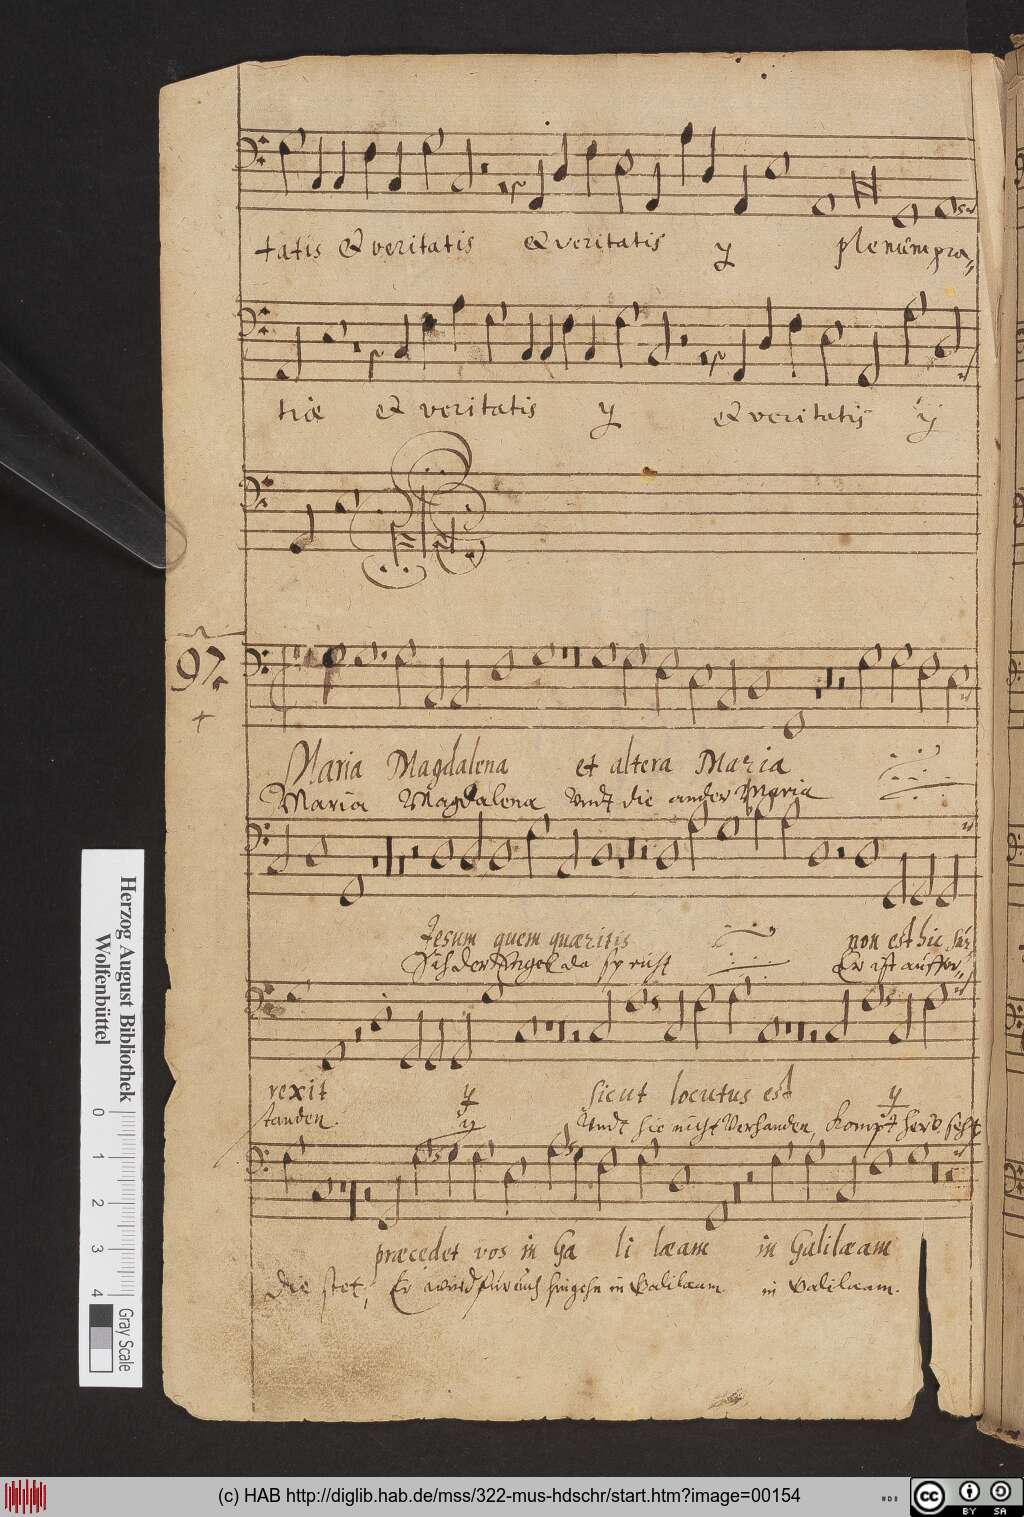 tatis & veritatis & veritatis ij plenum gra
tiæ & veritatis ij & veritatis ij
97
Maria Magdalena et altera Maria
Maria Magdalena Undt die ander Maria
Jesum quem quæritis non est hic sur
Sich der Engel da spricht Er ist auffer
rexit ij sicut locutus est ij
standen. ij Undt hie nicht Verhanden, Kompt her v. seht
præcedet vos in Ga li læam in Galilæam
die stet, Er wird fur euch hingehn in Galilæam in Galilæam.
Herzog August Bibliothek
Wolfenbüttel
0 1 2 3 4
Gray Scale
(c) HAB http://diglib.hab.de/mss/322-mus-hdschr/start.htm?image=00154
cc BY SA